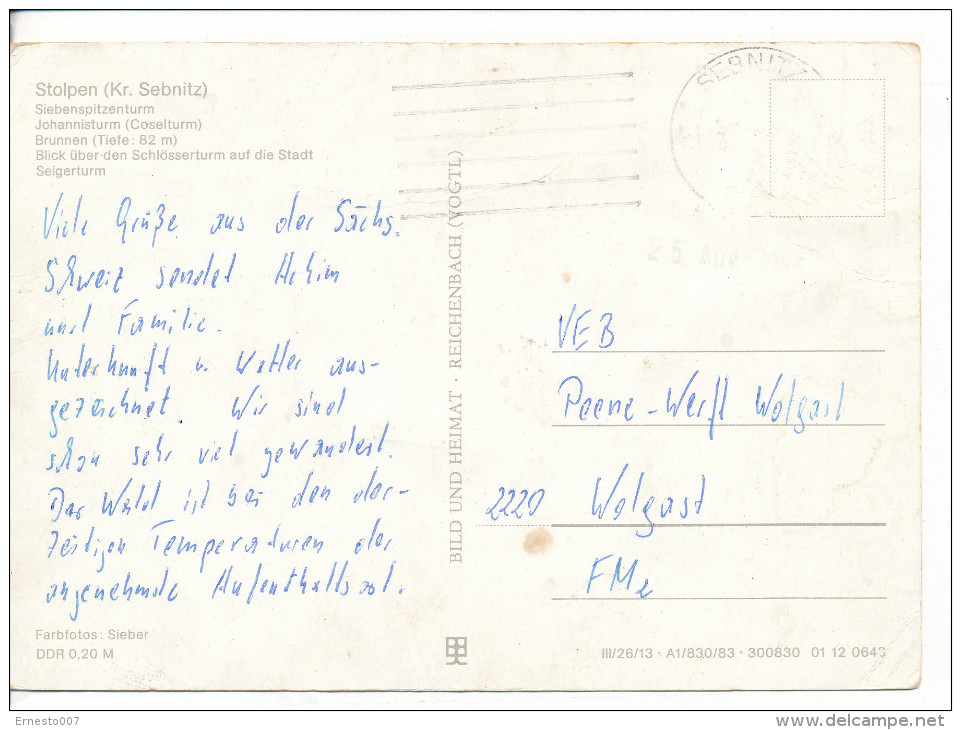 Stolpen (Kr. Sebnitz)
Siebenspitzenturm
Johannisturm (Coselturm)
Brunnen (Tiefe: 82 m)
Blick über den Schlösserturm auf die Stadt
Seigerturm
Viele Grüße aus der Sächs.
Schweiz sendet Achim
und Familie.
Unterkunft u. Wetter aus-
gezeichnet. Wir sind
schon sehr viel gewandert.
Der Wald ist bei den der-
zeitigen Temperaturen der
angenehmste Aufenthaltsort.
Farbfotos: Sieber
DDR 0,20 M
BILD UND HEIMAT · REICHENBACH (VOGTL)
SEBNITZ
25. Aug
VEB
Peene-Werft Wolgast
2220 Wolgast
FMe
III/26/13 · A1/830/83 · 300830 01 12 0643
Ernesto007
www.delcampe.net